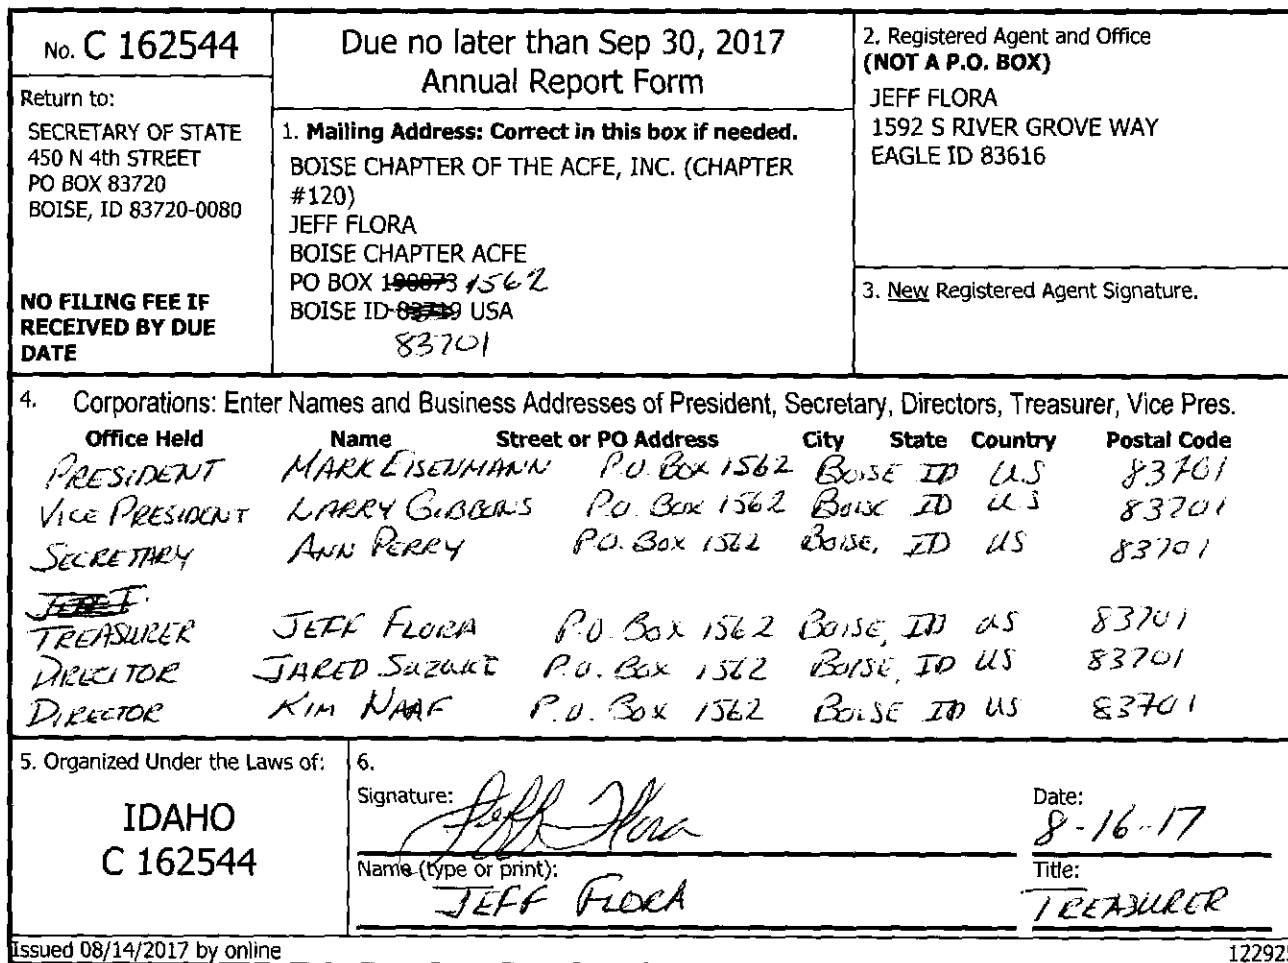 No. C 162544
Return to:
SECRETARY OF STATE
450 N 4th STREET
PO BOX 83720
BOISE, ID 83720-0080
NO FILING FEE IF
RECEIVED BY DUE
DATE
Due no later than Sep 30, 2017
Annual Report Form
1. Mailing Address: Correct in this box if needed.
BOISE CHAPTER OF THE ACFE, INC. (CHAPTER
#120)
JEFF FLORA
BOISE CHAPTER ACFE
PO BOX 190073 1562
BOISE ID 83719 USA
83701
2. Registered Agent and Office
(NOT A P.O. BOX)
JEFF FLORA
1592 S RIVER GROVE WAY
EAGLE ID 83616
3. New Registered Agent Signature.
4. Corporations: Enter Names and Business Addresses of President, Secretary, Directors, Treasurer, Vice Pres.
Office Held Name Street or PO Address City State Country Postal Code
PRESIDENT MARK EISENMANN P.O. BOX 1562 BOISE ID US 83701
VICE PRESIDENT LARRY GIBBENS P.O. BOX 1562 BOISE ID US 83701
SECRETARY ANN PERRY P.O. BOX 1562 BOISE, ID US 83701
TREASURER JEFF FLORA P.O. BOX 1562 BOISE, ID US 83701
DIRECTOR JARED SUZUKI P.O. BOX 1562 BOISE, ID US 83701
DIRECTOR KIM NAAF P.O. BOX 1562 BOISE ID US 83701
5. Organized Under the Laws of:
IDAHO
C 162544
6.
Signature: Jeff Flora
Date: 8-16-17
Name (type or print): JEFF FLORA
Title: TREASURER
Issued 08/14/2017 by online
12292